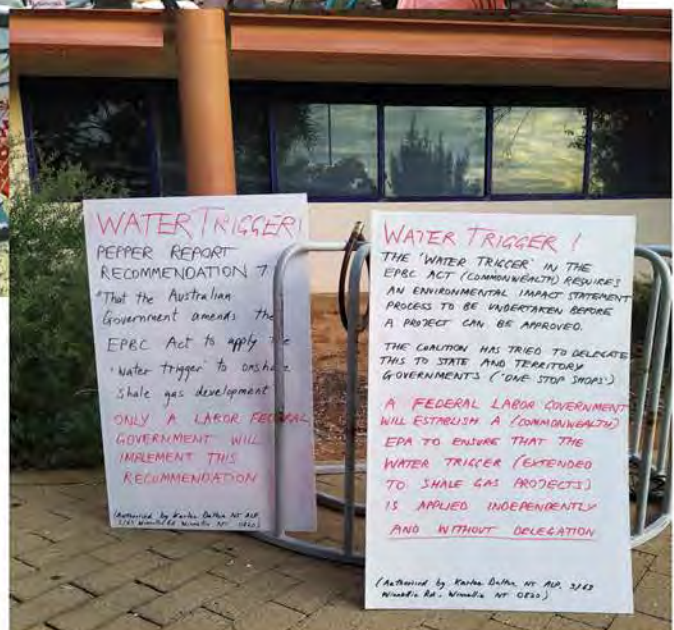 WATER TRIGGER!
PEPPER REPORT
RECOMMENDATION 7.
"That the Australian
Government amends the
EPBC Act to apply the
'water trigger' to onshore
shale gas development
ONLY A LABOR FEDERAL
GOVERNMENT WILL
IMPLEMENT THIS
RECOMMENDATION
(Authorised by Karlee Dalton NT ALP
3/63 Winnellie Rd Winnellie NT 0820)
WATER TRIGGER!
THE 'WATER TRIGGER' IN THE
EPBC ACT (COMMONWEALTH) REQUIRES
AN ENVIRONMENTAL IMPACT STATEMENT
PROCESS TO BE UNDERTAKEN BEFORE
A PROJECT CAN BE APPROVED.
THE COALITION HAS TRIED TO DELEGATE
THIS TO STATE AND TERRITORY
GOVERNMENTS ('ONE STOP SHOPS')
A FEDERAL LABOR GOVERNMENT
WILL ESTABLISH A (COMMONWEALTH)
EPA TO ENSURE THAT THE
WATER TRIGGER (EXTENDED
TO SHALE GAS PROJECTS)
IS APPLIED INDEPENDENTLY
AND WITHOUT DELEGATION
(Authorised by Karlee Dalton NT ALP. 3/63
Winnellie Rd. Winnellie NT 0820)